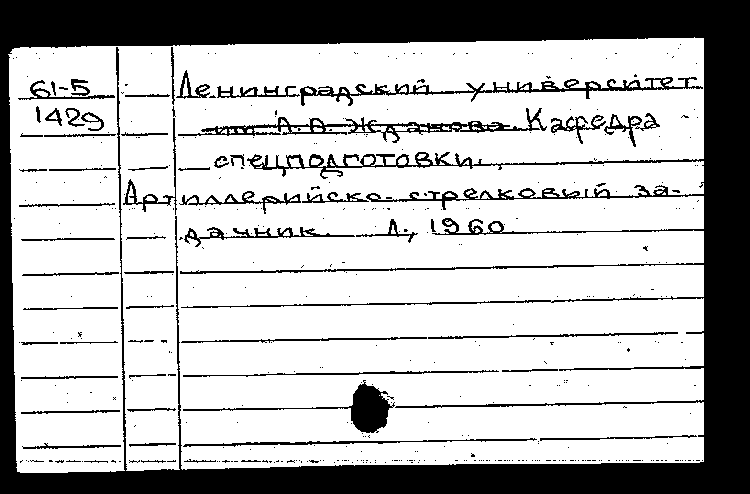 61-5 Ленинградский университет
1429 им А. А. Жданова. Кафедра
спецподготовки.
Артиллерийско-стрелковый за-
дачник. Л., 1960.